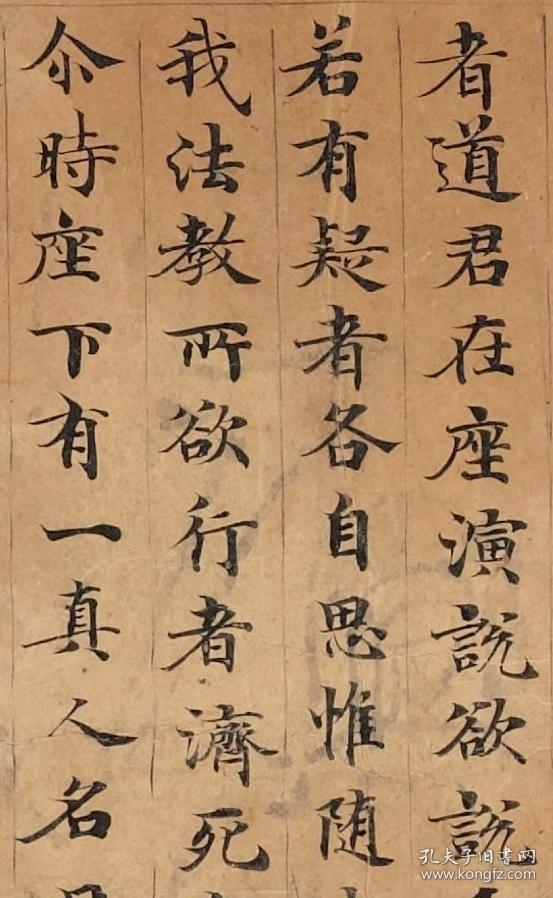 者道君在座演説欲説
若有疑者各自思惟随
我法教所欲行者濟死
尒時座下有一真人名
孔夫子旧書网
www.kongfz.com